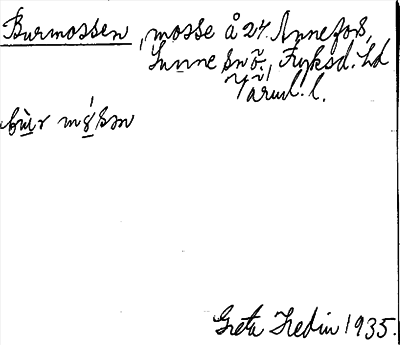 Burmossen, mosse å 24. Annefors,
Sunne sn ö., Fryksd. hd
Värml. l.
bùr mósən
Greta Hedin 1935.